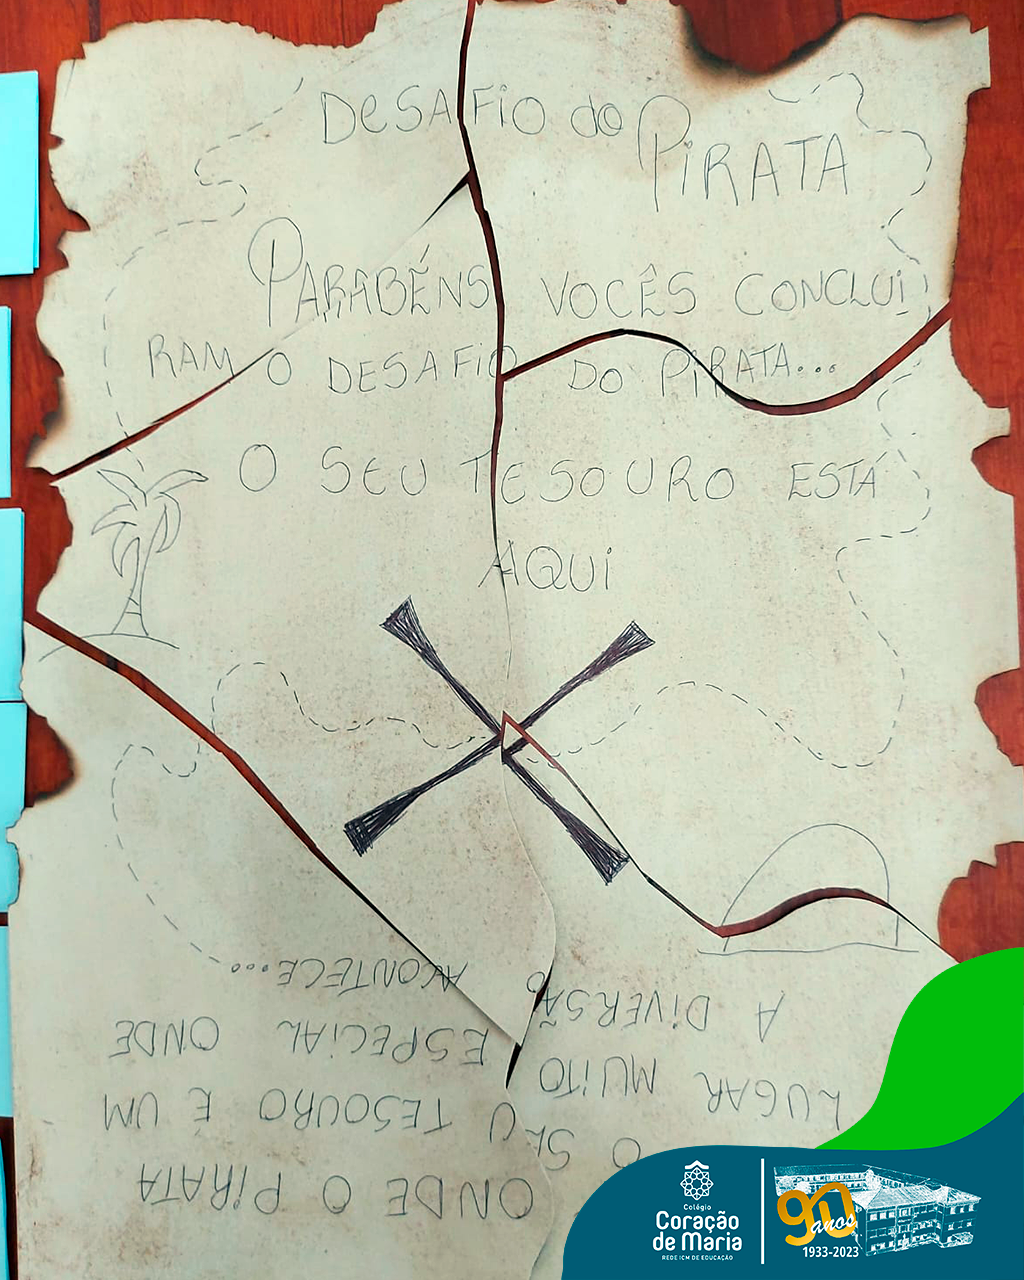 DESAFIO do PIRATA
PARABÉNS VOCÊS CONCLUI
RAM O DESAFIO DO PIRATA...
O SEU TESOURO ESTÁ
AQUI
ONDE O PIRATA
O SEU TESOURO É UM
LUGAR MUITO ESPECIAL ONDE
A DIVERSÃO ACONTECE...
Colégio
Coração
de Maria
REDE ICM DE EDUCAÇÃO
90
anos
1933-2023